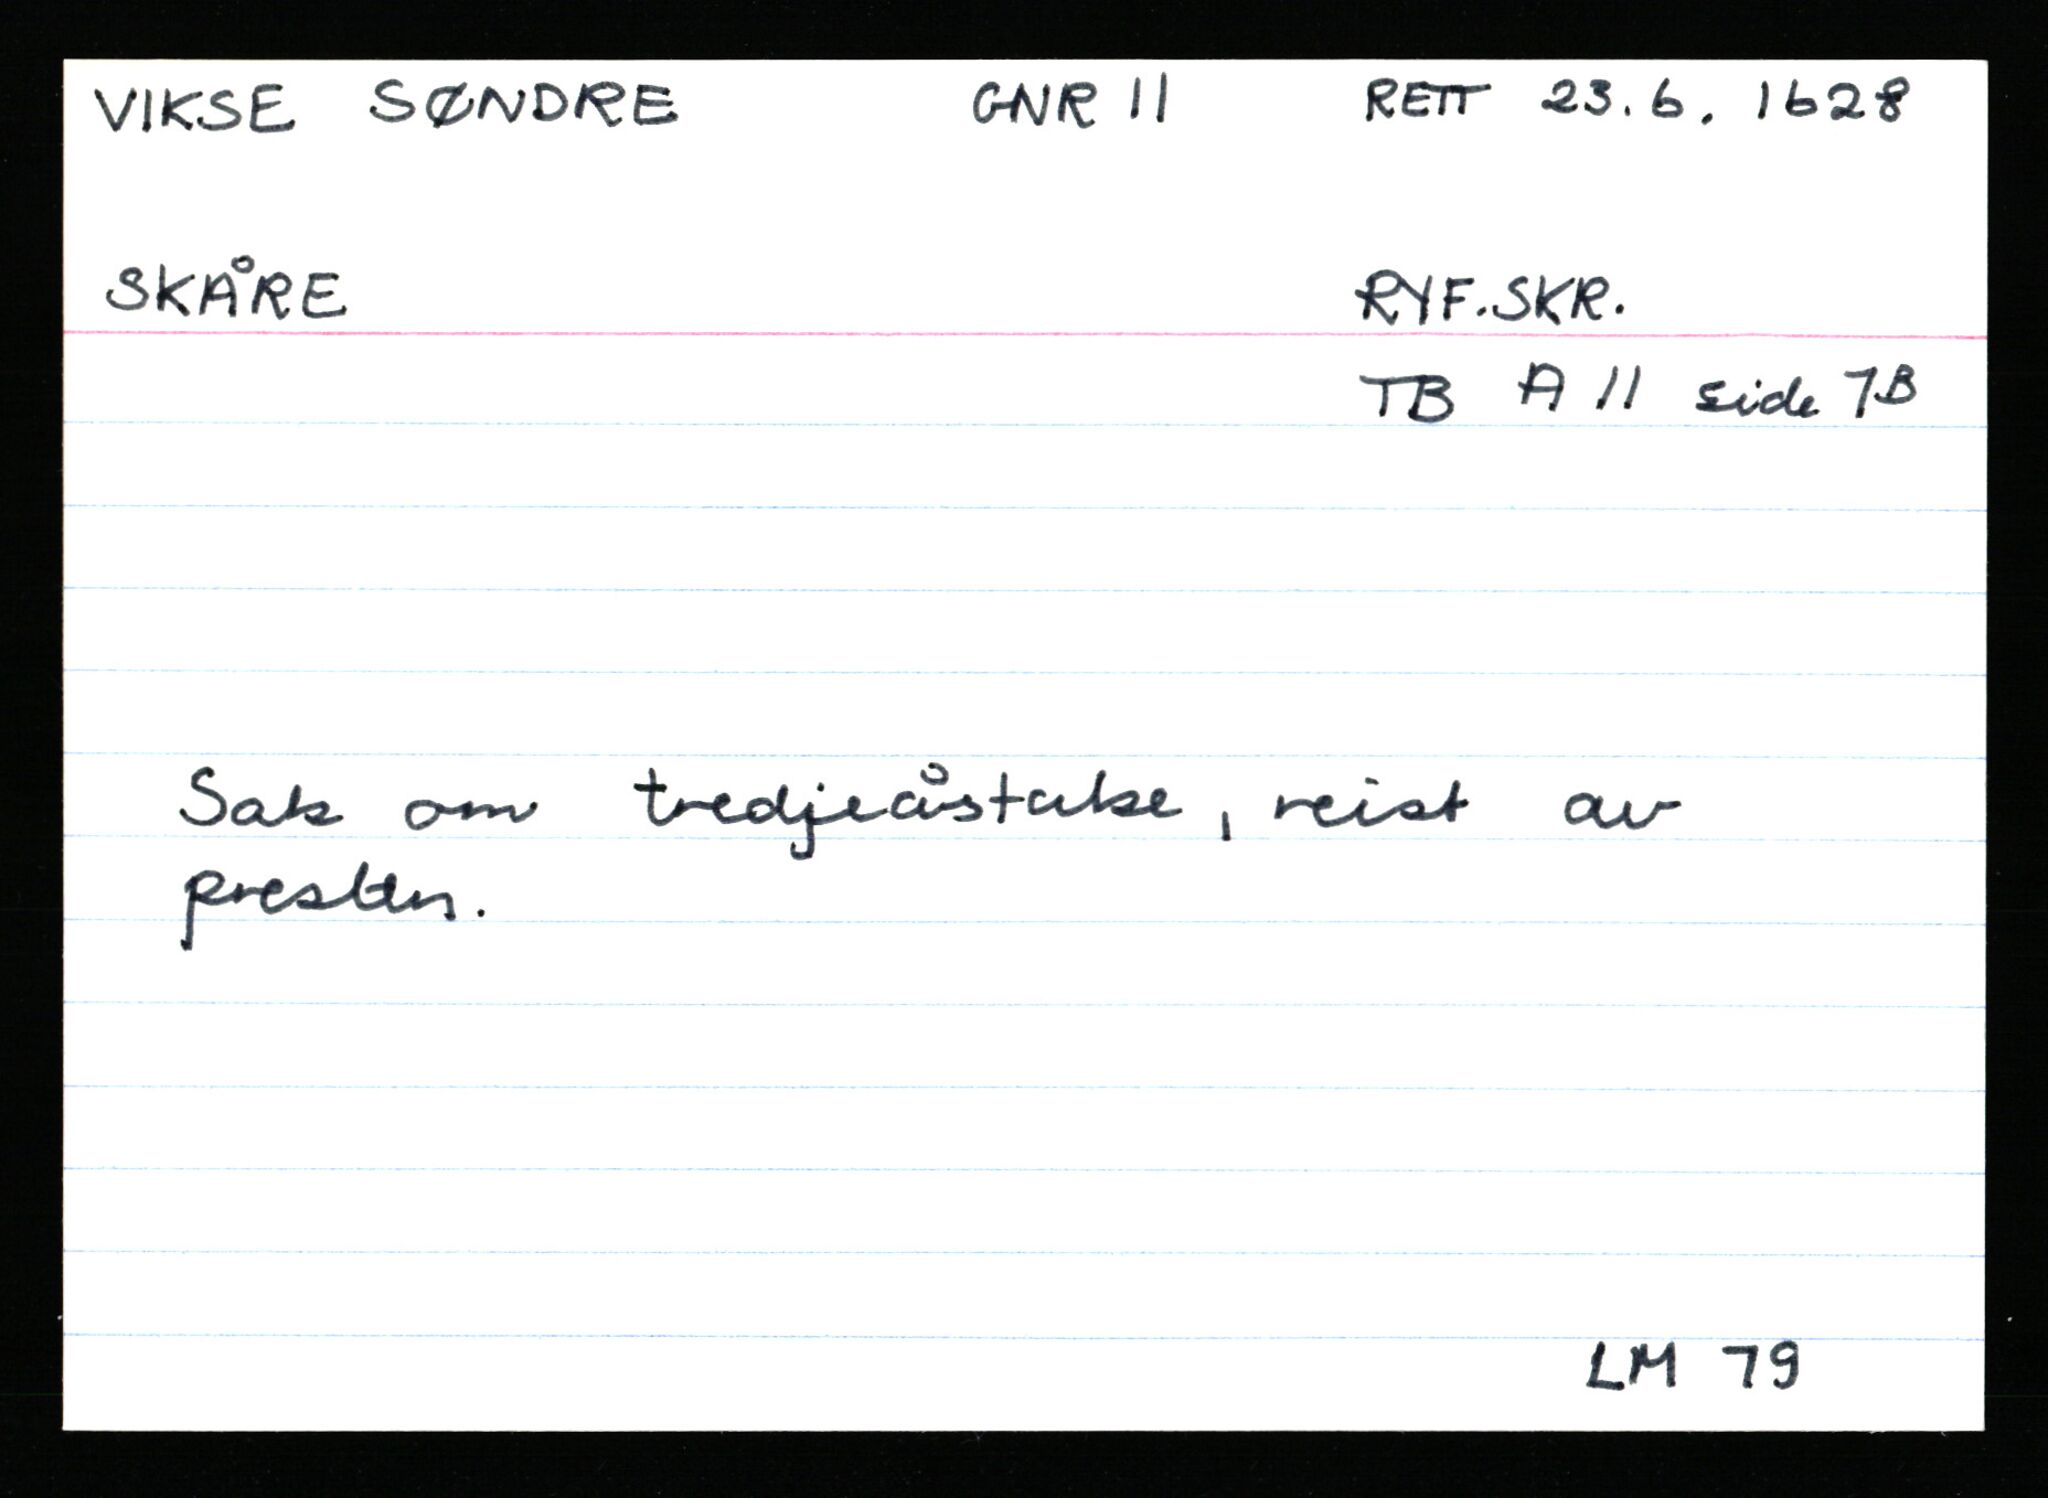 VIKSE SØNDRE GNR 11 RETT 23.6.1628
SKÅRE RYF.SKR.
TB A 11 side 7B
Sak om tredjeåstake, reist av
presten.
LM 79